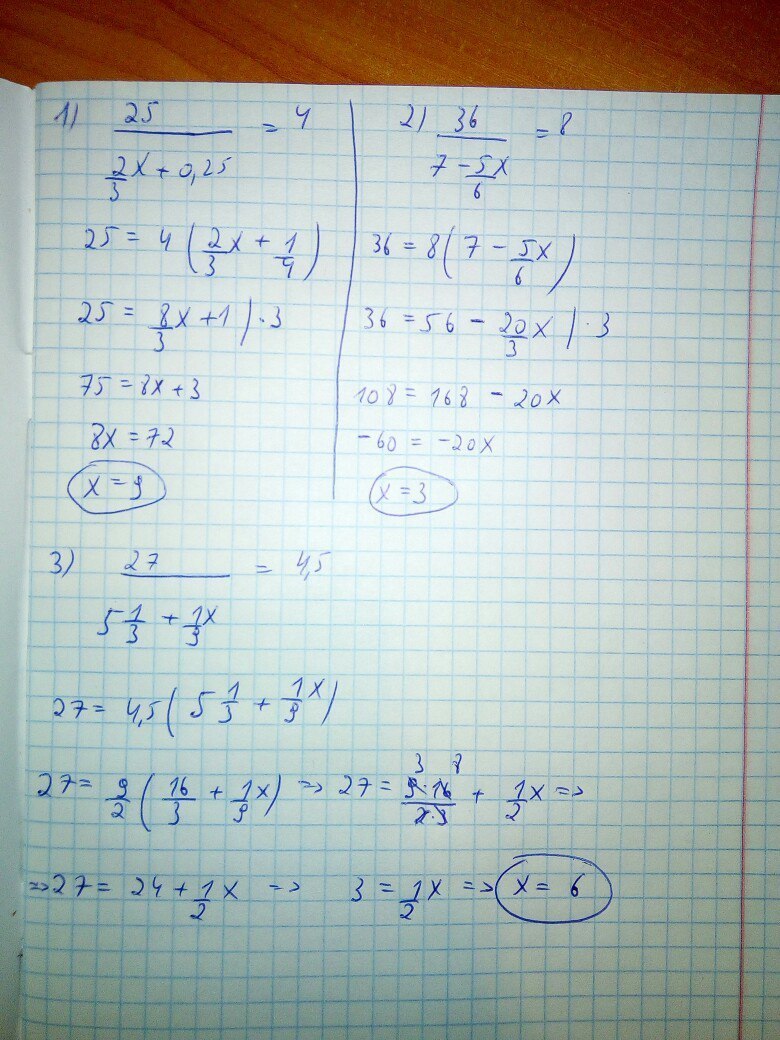 1) 25/(2/3x + 0,25) = 4
25 = 4(2/3x + 1/4)
25 = 8/3x + 1 | · 3
75 = 8x + 3
8x = 72
x = 9
2) 36/(7 - 5/6x) = 8
36 = 8(7 - 5/6x)
36 = 56 - 20/3x | · 3
108 = 168 - 20x
-60 = -20x
x = 3
3) 27/(5 1/3 + 1/9x) = 4,5
27 = 4,5(5 1/3 + 1/9x)
27 = 9/2(16/3 + 1/9x) => 27 = 9·16/2·3 + 1/2x =>
3 8
=> 27 = 24 + 1/2x => 3 = 1/2x => x = 6